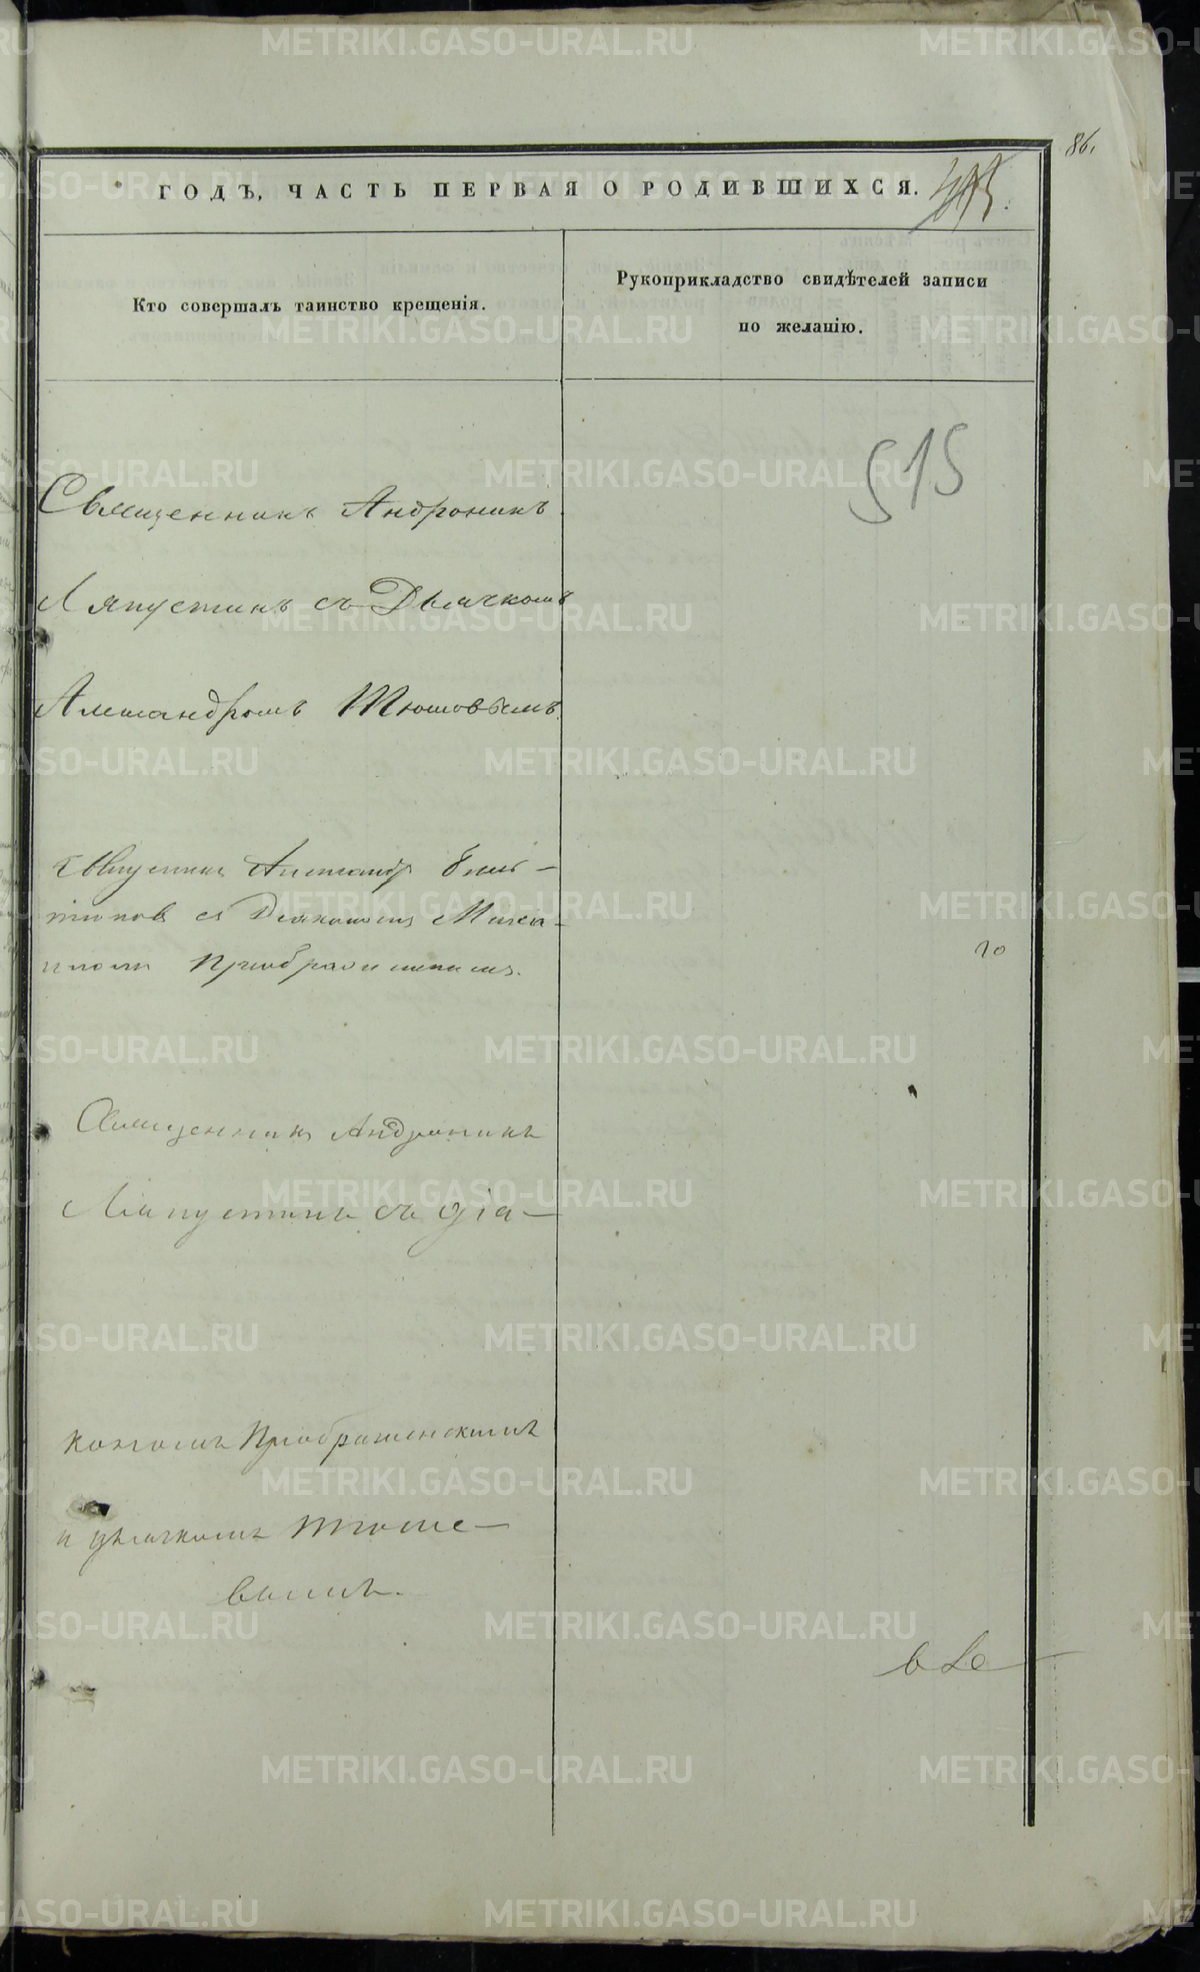 86.
ГОДЪ, ЧАСТЬ ПЕРВАЯ О РОДИВШИХСЯ.
Кто совершалъ таинство крещенія.
Рукоприкладство свидѣтелей записи
по желанію.
515
Священникъ Андроникъ
Ляпустинъ съ Дьячкомъ
Александромъ Тюшовымъ
Священникъ Александръ
съ Діакономъ Миха-
иломъ Преображенскимъ.
10
Священникъ Андроникъ
Ляпустинъ съ діа-
кономъ Преображенскимъ
и дьячкомъ Тюше-
вымъ.
METRIKI.GASO-URAL.RU